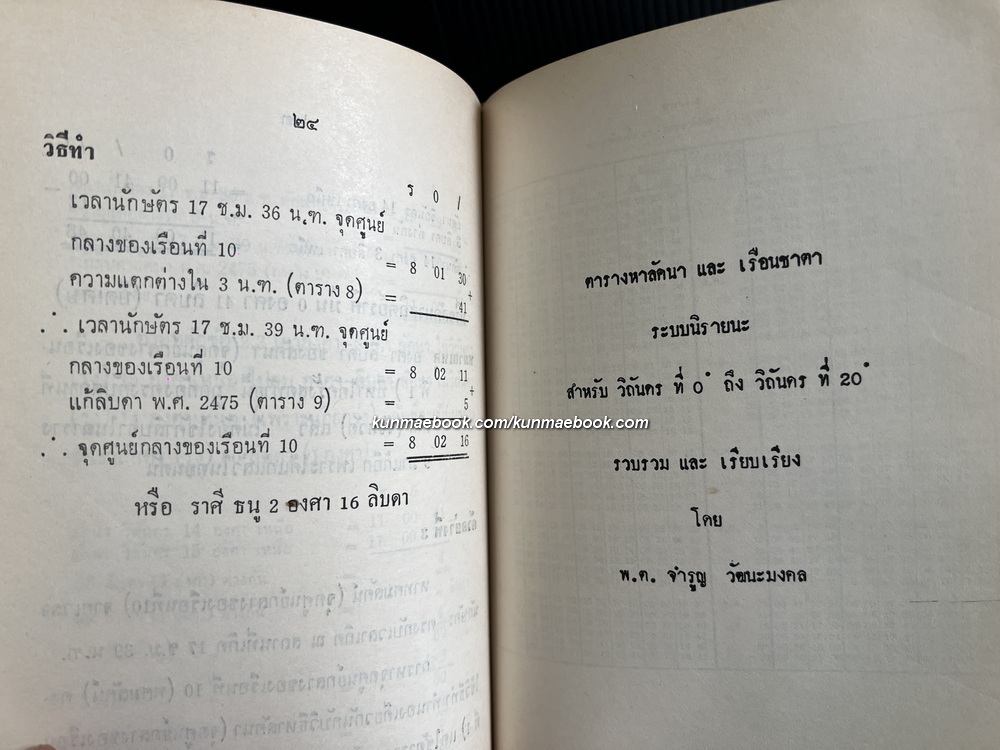 ๒๔
วิธีทำ
ร 0 /
เวลานักษัตร 17 ช.ม. 36 น.ฑ. จุดศูนย์
กลางของเรือนที่ 10 = 8 01 30
ความแตกต่างใน 3 น.ฑ. (ตาราง 8) = 41 +
∴ เวลานักษัตร 17 ช.ม. 39 น.ฑ. จุดศูนย์
กลางของเรือนที่ 10 = 8 02 11
แก้ลิบดา พ.ศ. 2475 (ตาราง 9) = 5 +
∴ จุดศูนย์กลางของเรือนที่ 10 = 8 02 16
หรือ ราศี ธนู 2 องศา 16 ลิบดา
ตารางหาลัคนา และ เรือนชาตา
ระบบนิรายนะ
สำหรับ วิถันดร ที่ 0° ถึง วิถันดร ที่ 20°
รวบรวม และ เรียบเรียง
โดย
พ.ต. จำรูญ วัฒนะมงคล
kunmaebook.com/kunmaebook.com